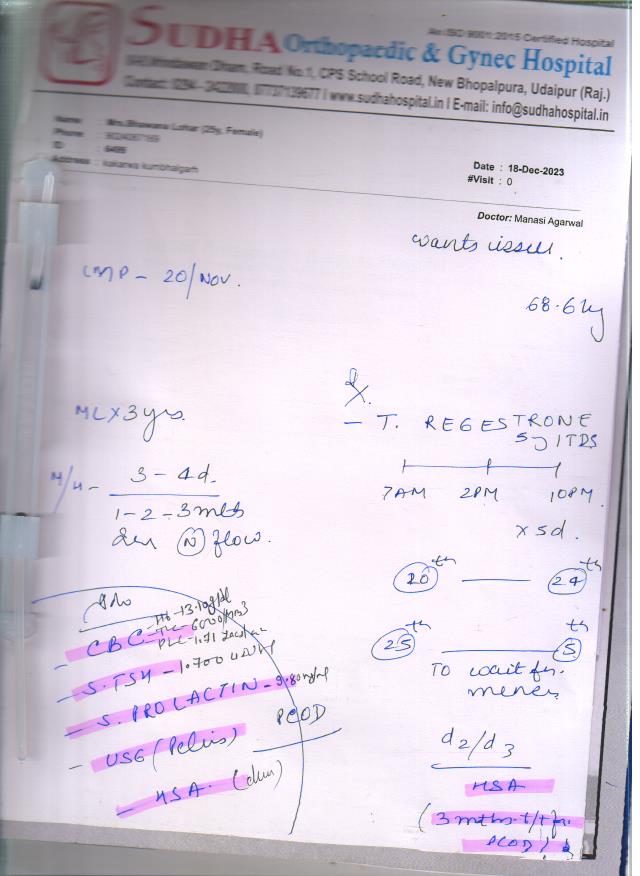 An ISO 9001:2015 Certified Hospital
SUDHA Orthopaedic & Gynec Hospital
Road No.1, CPS School Road, New Bhopalpura, Udaipur (Raj.)
Contact: 0294 - 07737139677 I www.sudhahospital.in I E-mail: info@sudhahospital.in
Name : Mrs.Bhawana Lohar (25y, Female)
Phone :
ID : 6466
Address : kakarwa kumbhalgarh
Date : 18-Dec-2023
#Visit : 0
Doctor: Manasi Agarwal
wants issue.
LMP - 20/NOV.
68.6 kg
Rx
ML x 3 yrs.
- T. REGESTRONE
5 1TDS
7AM 2PM 10PM.
x 5d.
M/H - 3 - 4d.
1 - 2 - 3 mths
N flow.
20th — 24th
25th — 5th
TO wait for
menses
Adv
- CBC - Hb - 13.1
TLC - 6000/mm3
PLC - 1.71
- S. TSH - 1.700
- S. PROLACTIN - 9.80
- USG (Pelvis) PCOD
- HSA.
d2/d3
HSA
(3 mths t/t for
PCOD)